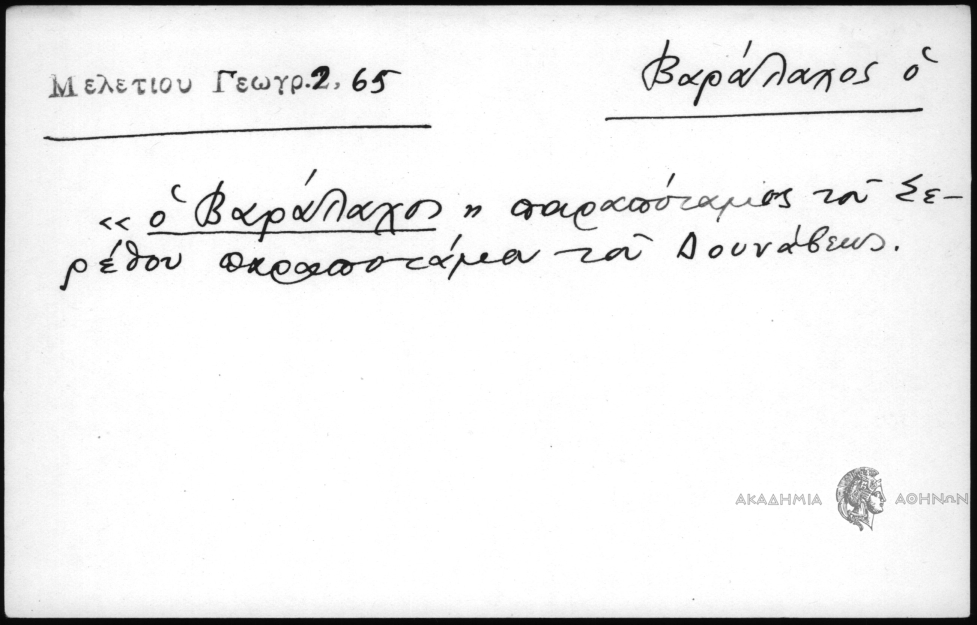 Μελετίου Γεωγρ. 2, 65
Βαράλαχος ὁ
«ὁ Βαράλαχος» παραπόταμος τοῦ Σε-
ρέθου παραποτάμου τοῦ Δουνάβεως.
ΑΚΑΔΗΜΙΑ ΑΘΗΝΩΝ